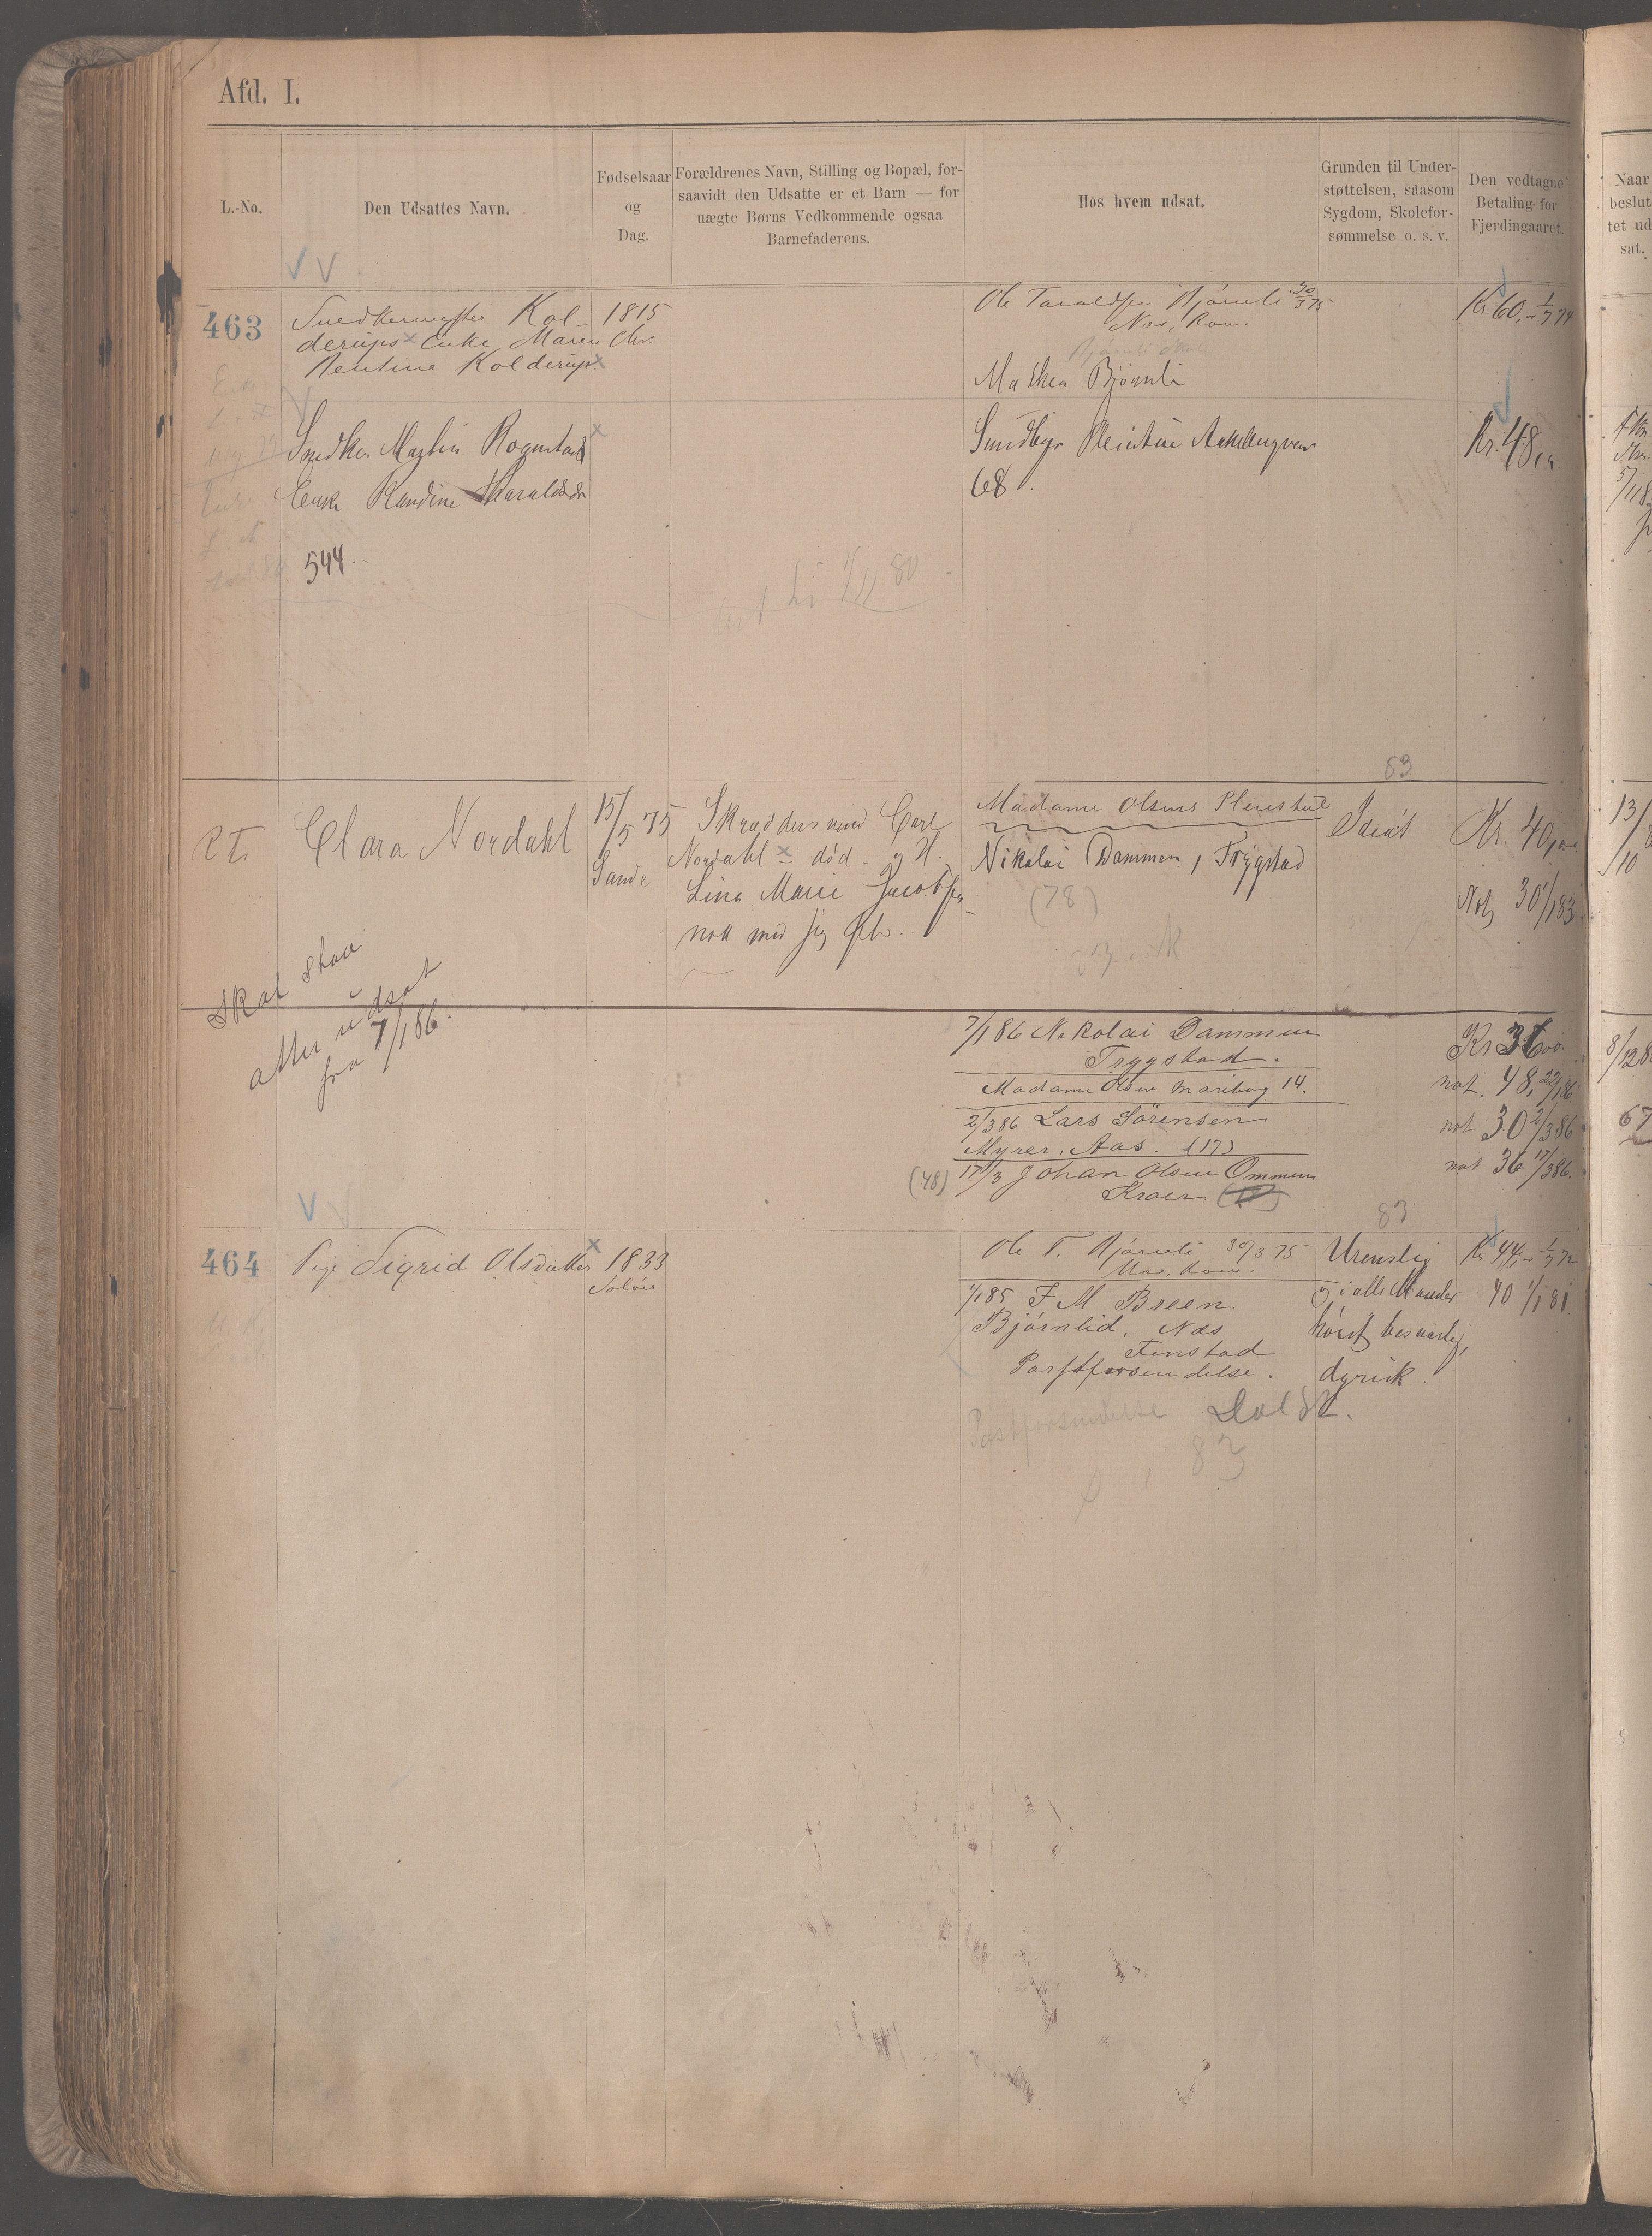 Afd. I.
L.-No.
Den Udsattes Navn.
Fødselsaar
og
Dag.
Forældrenes Navn, Stilling og Bopæl, for-
saavidt den Udsatte er et Barn — for
uægte Børns Vedkommende ogsaa
Barnefaderens.
Hos hvem udsat.
Grunden til Under-
støttelsen, saasom
Sygdom, Skolefor-
sømmelse o. s. v.
Den vedtagne
Betaling for
Fjerdingaaret.
Naar
beslut
tet ud
sat.
463
Snedkermester Kol-
derups Enke Maren Chr.
Kolderup
1815
Ole Taraldsen Bjørnli 30/3 75
Næs, Rom.
Mathea Bjørnli
Kr 60,- 1/7 74
Snedker Martin Rognstads
Enke Randine Haraldsdr
544
1/11 80
Sundbys Pleiestue Akersveien
68.
Kr. 48,
83
Clara Nordahl
15/5 75
Sande
Skræddersvend Carl
Nordahl - død - og H.
Lina Marie Jacobsen
Madame Olsens Pleiestue
Nikolai Dammen, Trygstad
(78)
Idiot
Kr. 40,00
Not 30 1/1 83
13/
10
Skal staa
atter udsat
fra 7/1 86.
7/1 86 Nikolai Dammen
Trygstad.
Madame Olsen Maribog 14.
2/3 86 Lars Sörensen
Myrer. Aas. (17)
(48) 17/3 Johan Olsen Ommen
Kraer
Kr 36,00.
not. 48, 22/1 86
not 30 2/3 86
not 36 17/3 86.
8/12 8
67
83
464
Pige Sigrid Olsdatter
1833
Soløer
Ole T. Bjørnli 30/3 75
Næs. Rom.
1/1 85 F M Breen
Bjørnlid, Næs
Fenstad
Postforsendelse.
Postforsendelse
83
Urenslig
og i alle Maader
høist besværlig,
dyrisk.
Kr 44,- 1/7 72
40 1/1 81